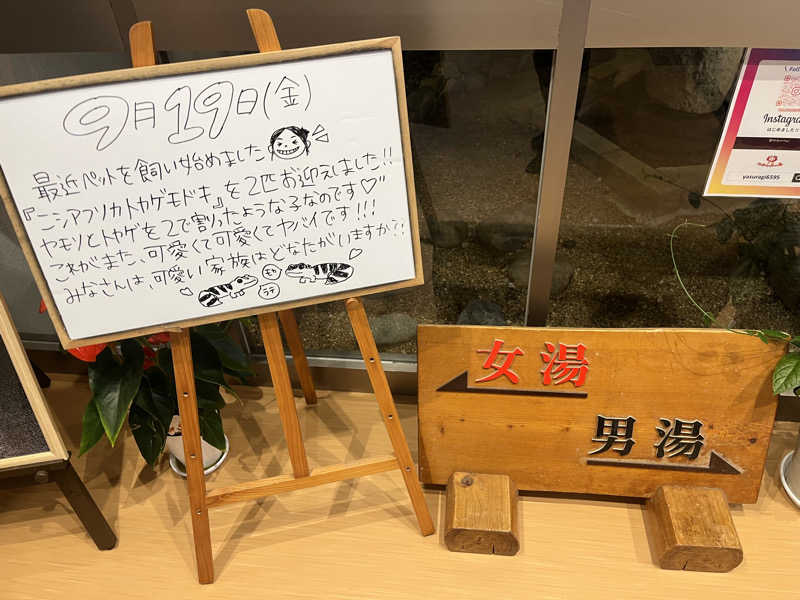 9月19日(金)
最近ペットを飼い始めました
『ニシアフリカトカゲモドキ』を2匹お迎えしました!!
ヤモリとトカゲを2で割ったような子なのです♡"
これがまた、可愛くて可愛くてヤバイです!!!
みなさんは、可愛い家族はどなたがいますか?!
モカ
ラテ
女湯
男湯
Instagra
はじめました
yasuragi6595